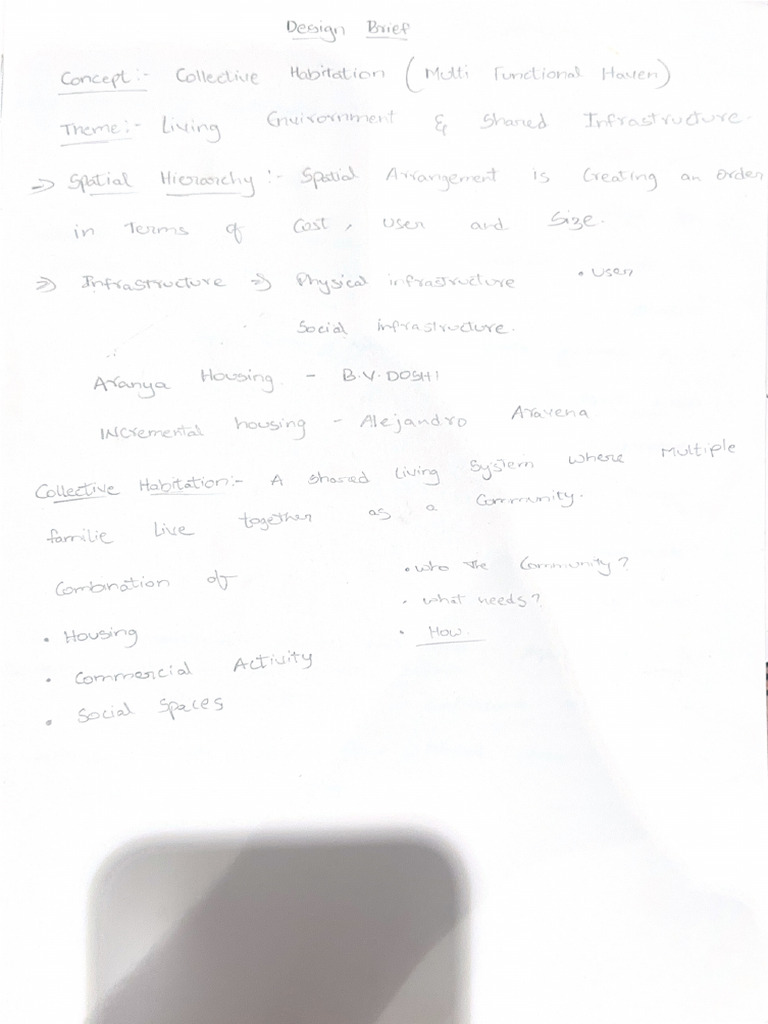 Design Brief
Concept:- Collective Habitation (Multi Functional Haven)
Theme:- Living Environment & Shared Infrastructure.
⇒ Spatial Hierarchy:- Spatial Arrangement is Creating an order
in Terms of Cost, User and Size.
⇒ Infrastructure ⇒ Physical infrastructure • User
Social infrastructure.
Aranya Housing - B.V.DOSHI
INCremental housing - Alejandro Aravena
Collective Habitation:- A shared Living System where Multiple
familie Live together as a Community.
Combination of
• Housing
• Commercial Activity
• Social Spaces
• who the Community?
• what needs?
• How.